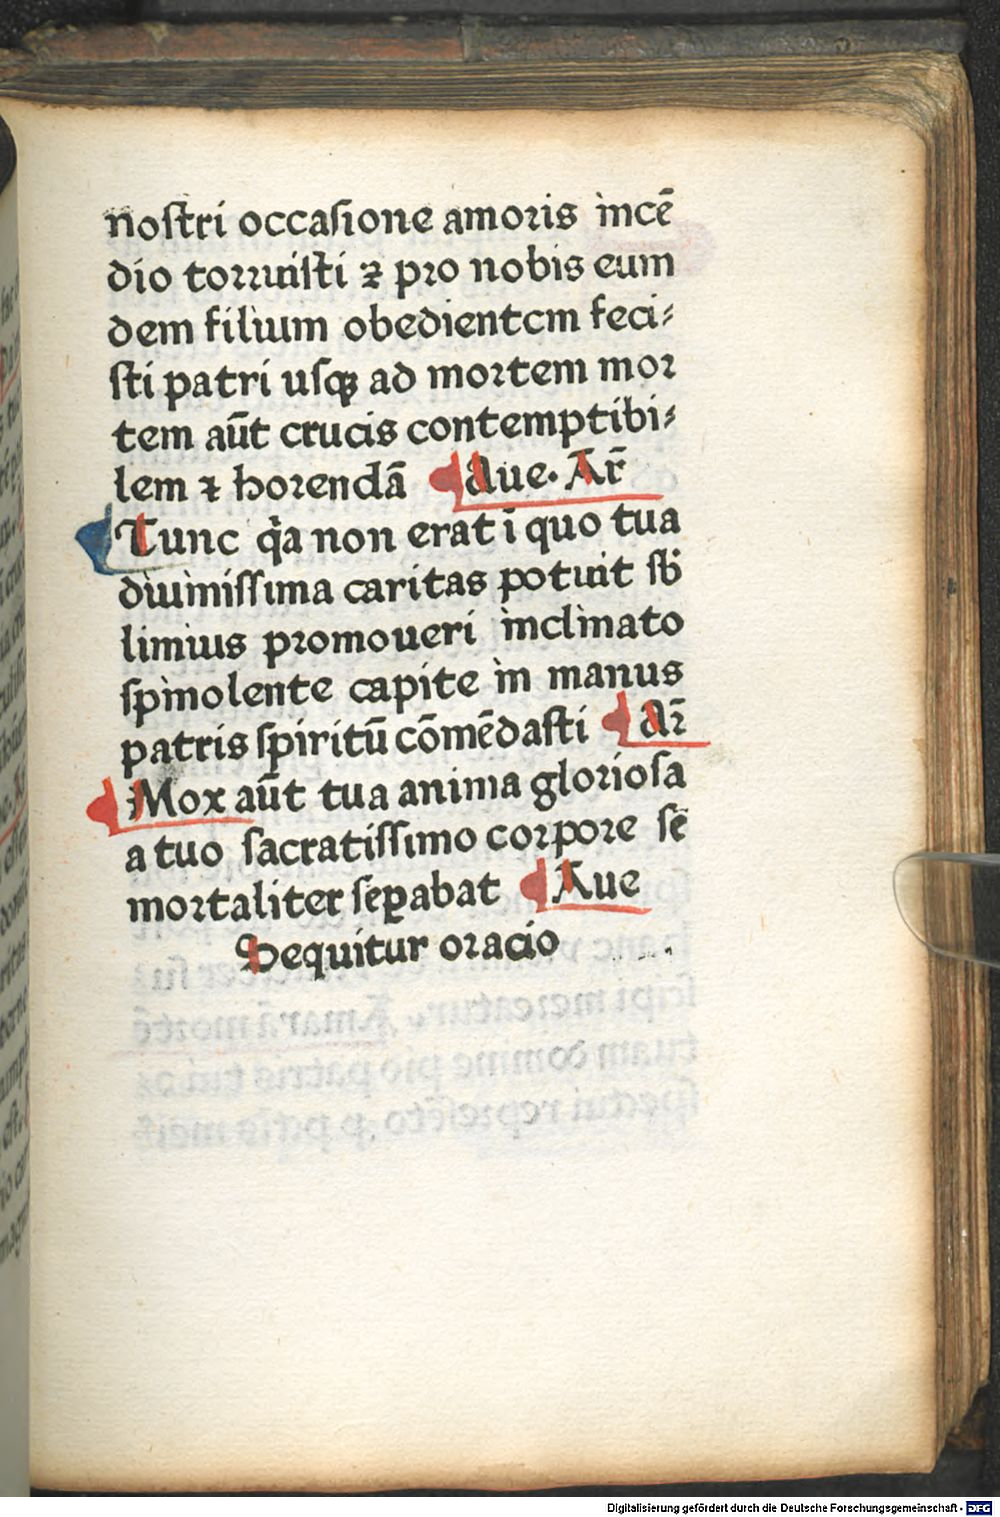 nostri occasione amoris incē
dio torruisti ⁊ pro nobis eum
dem filium obedientem feci⸗
sti patri usqꝫ ad mortem mor
tem aūt crucis contemptibi⸗
lem ⁊ horendā Aue. Ar̄
Tunc qͣa non erat ī quo tua
diuinissima caritas potuit sb̄
limius promoueri inclinato
spinolente capite in manus
patris spiritū cōmēdasti Ar̄
Mox aūt tua anima gloriosa
a tuo sacratissimo corpore sē
mortaliter seꝑabat Aue
Sequitur oracio
Digitalisierung gefördert durch die Deutsche Forschungsgemeinschaft - DFG